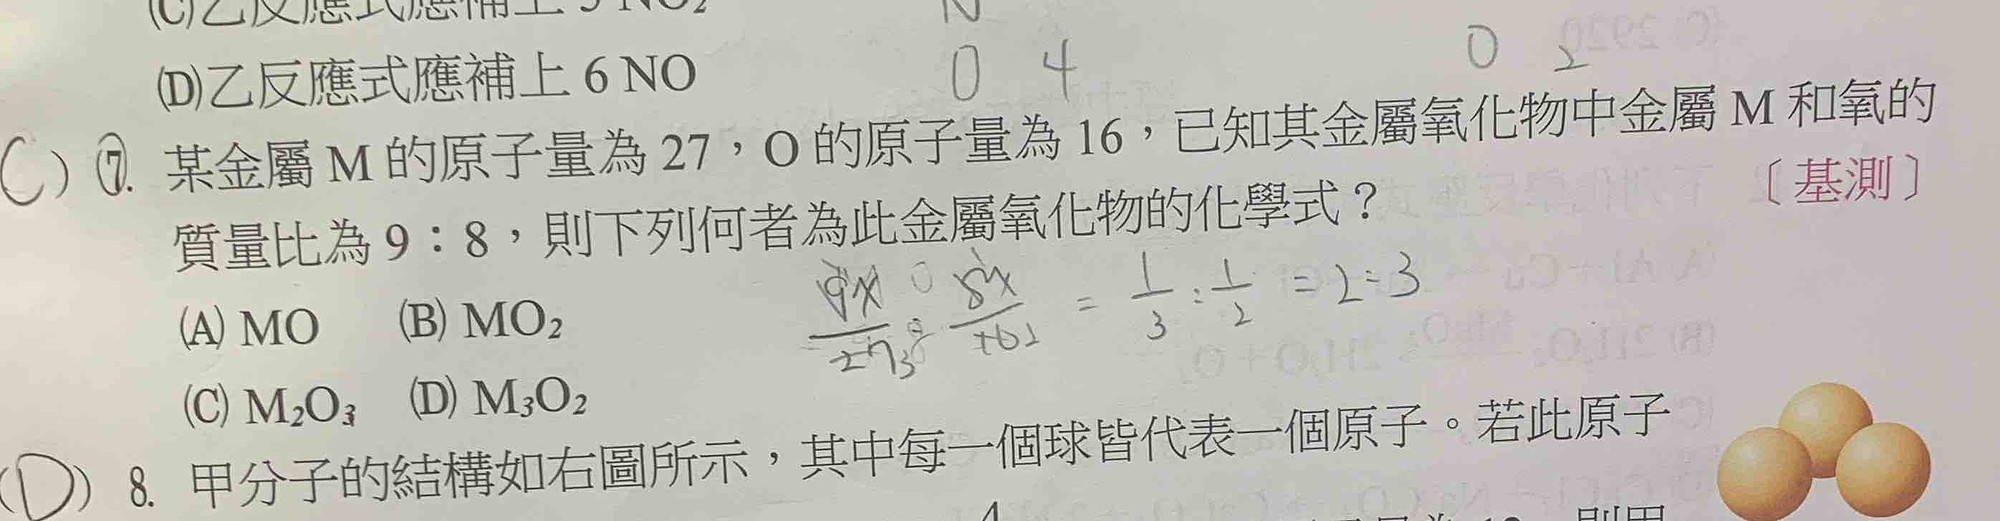 (C)乙反應式應補上 5 NO₂
N
(D)乙反應式應補上 6 NO
O 4
O 2
(C) ⑦. 某金屬 M 的原子量為 27，O 的原子量為 16，已知其金屬氧化物中金屬 M 和氧的
質量比為 9：8，則下列何者為此金屬氧化物的化學式？
〔基測〕
(A) MO (B) MO₂
= 1/3 : 1/2 = 2:3
(C) M₂O₃ (D) M₃O₂
(D) 8. 甲分子的結構如右圖所示，其中每一個球皆代表一個原子。若此原子